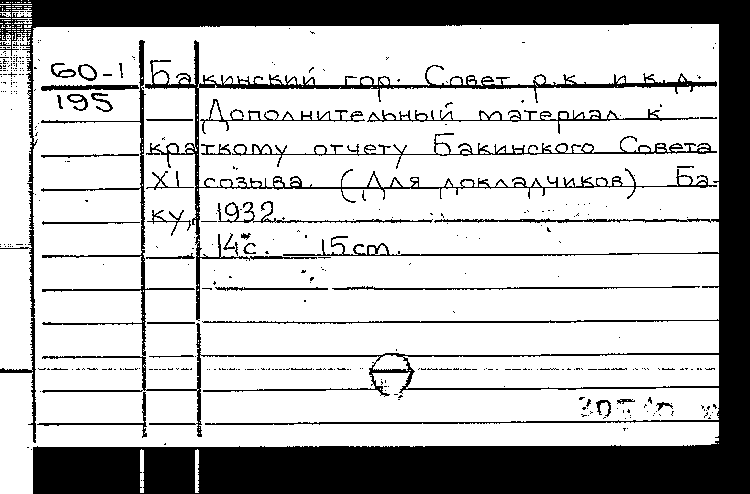 60-1 Бакинский гор. Совет р.к. и к.д.
195 Дополнительный материал к
кратκому отчету Бакинского Совета
XI созыва. (Для докладчиков). Ба-
ку, 1932.
14 с. 15 cm.